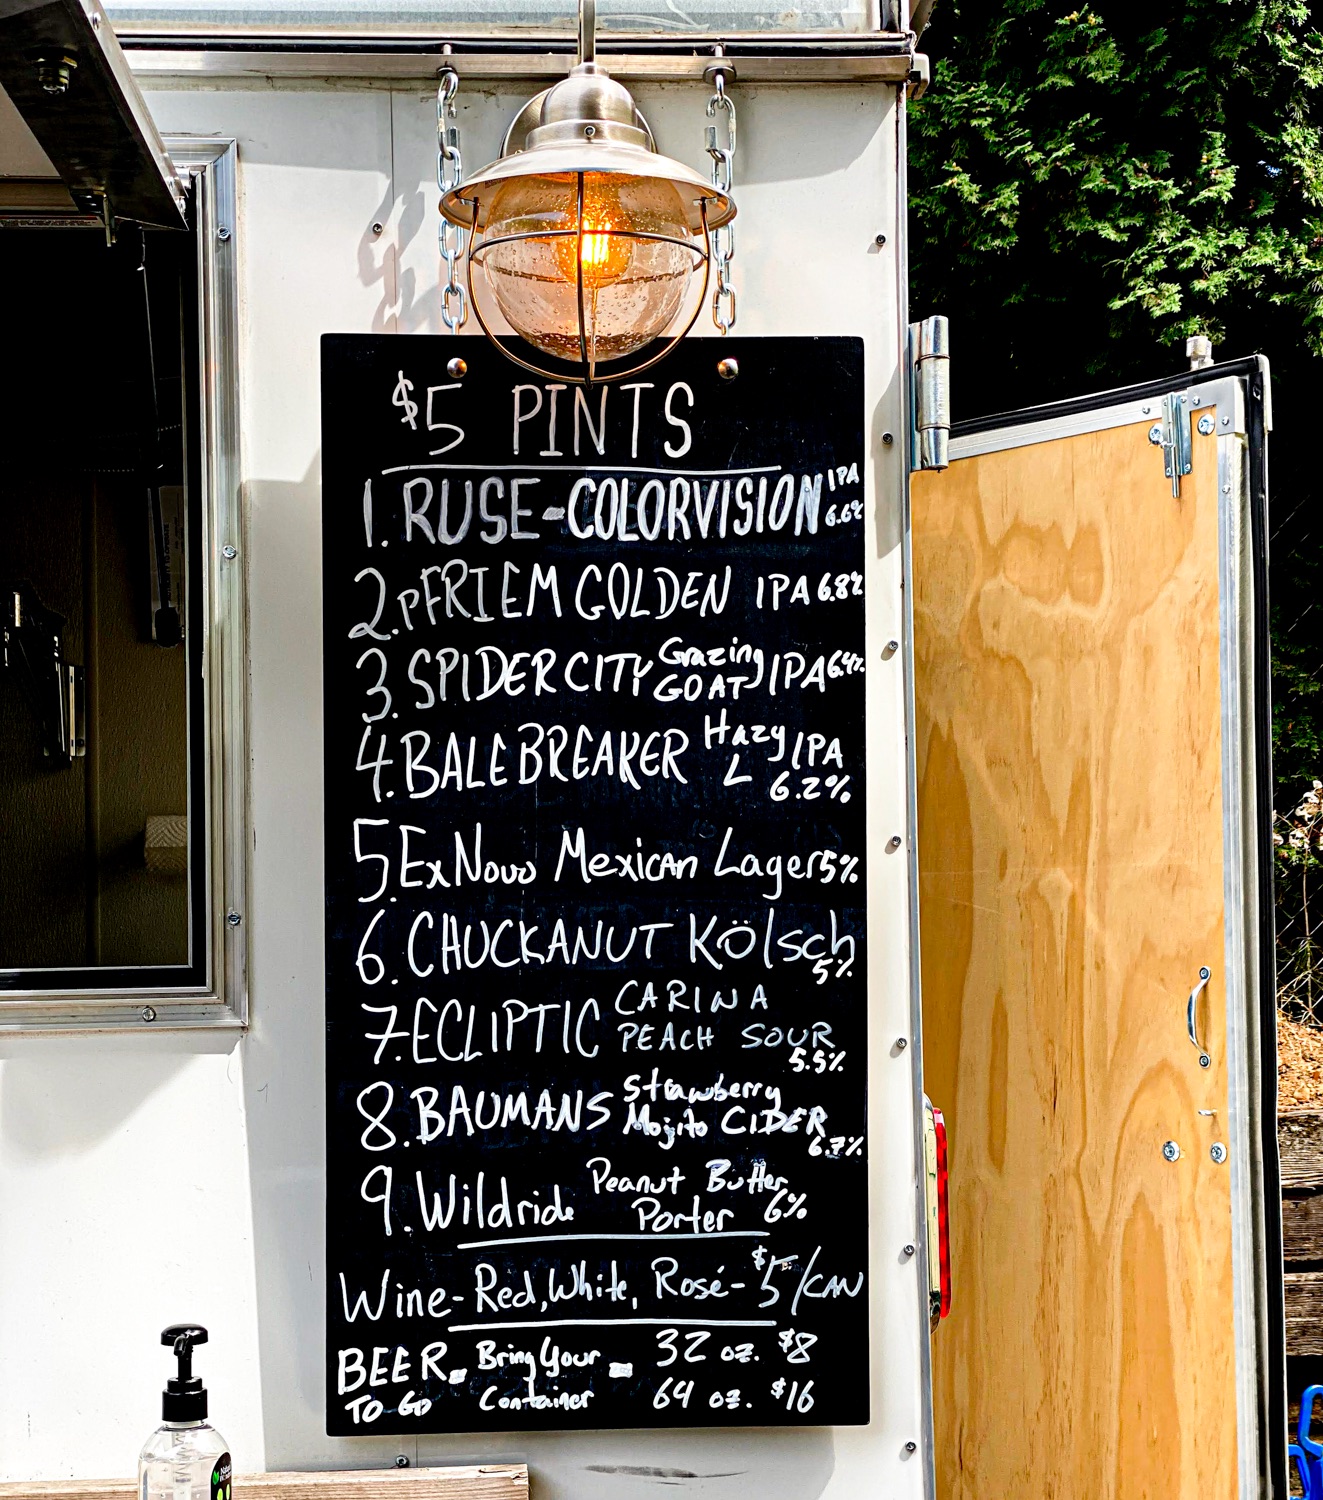 $5 PINTS
1. RUSE-COLORVISION IPA 6.6%
2. pFRIEM GOLDEN IPA 6.8%
3. SPIDER CITY Grazing GOAT IPA 6.4%
4. BALE BREAKER Hazy L IPA 6.2%
5. Ex Novo Mexican Lager 5%
6. CHUCKANUT Kölsch 5%
7. ECLIPTIC CARINA PEACH SOUR 5.5%
8. BAUMANS Strawberry Mojito CIDER 6.7%
9. Wildride Peanut Butter Porter 6%
Wine-Red, White, Rosé-$5/CAN
BEER TO GO - Bring Your Container - 32 oz. $8
64 oz. $16